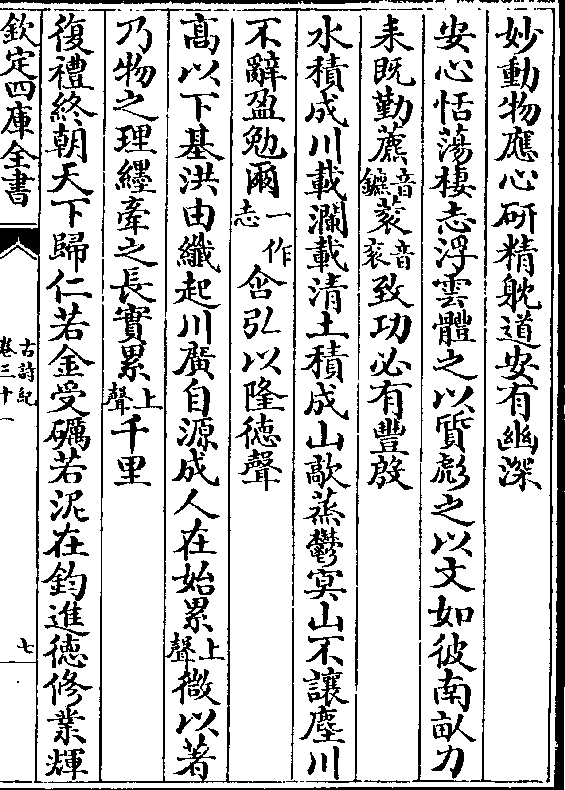 妙動物應心研精躭道安有幽深
安心恬蕩棲志浮雲體之以質彪之以文如彼南畝力
耒既勤藨音鑣蔉音衮致功必有豐殷
水積成川載瀾載清土積成山歊蒸鬱冥山不讓塵川
不辭盈勉爾一作志含弘以隆徳聲
髙以下基洪由纖起川廣自源成人在始累上聲微以著
乃物之理纆牽之長實累上聲千里
復禮終朝天下歸仁若金受礪若泥在鈞進徳修業輝
欽定四庫全書
古詩紀
卷三十一
七